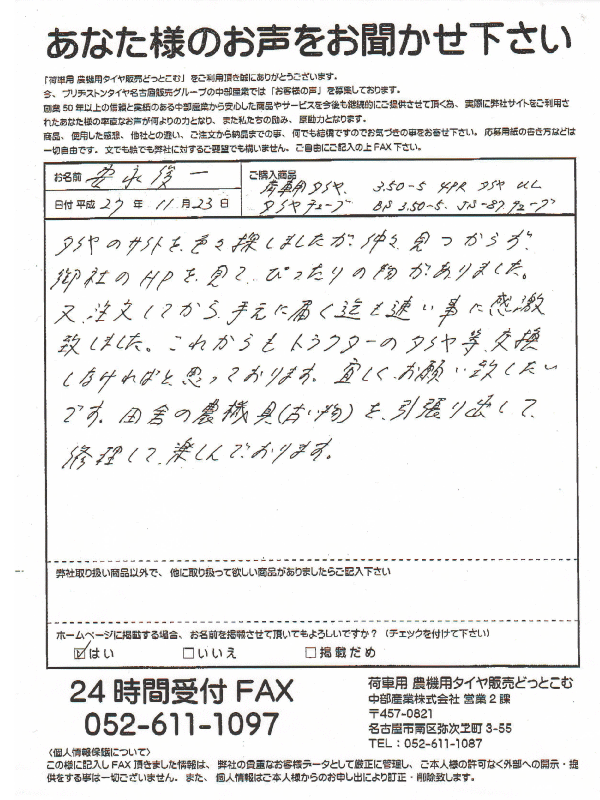 あなた様のお声をお聞かせ下さい
「荷車用 農機用タイヤ販売どっとこむ」をご利用頂き誠にありがとうございます。
今、ブリヂストンタイヤ名古屋販売グループの中部産業では「お客様の声」を募集しております。
創業50年以上の信頼と実績のある中部産業から安心した商品やサービスを今後も継続的にご提供させて頂く為、実際に弊社サイトをご利用さ
れたあなた様の率直なお声が何よりの力となり、また私たちの励み、原動力となります。
商品、使用した感想、他社との違い、ご注文から納品までの事、何でも結構ですのでお気づきの事をお寄せ下さい。応募用紙の書き方などは
一切自由です。文でも絵でも弊社に対するご要望でも構いません。ご自由にご記入の上FAX下さい。
お名前 安永俊一
ご購入商品
荷車用タイヤ 3.50-5 4PR タイヤ UL
日付平成 27 年 11 月 23 日
タイヤチューブ BS 3.50-5. JS-87チューブ
タイヤのサイトを色々探しましたが仲々見つからず、
御社のHPを見て、ぴったりの物がありました。
又、注文してから手元に届く迄も速い事に感激
致しました。これからもトラクターのタイヤ等、交換
しなければと思っております。宜しくお願い致したい
です。田舎の農機具(古い物)を、引張り出して、
修理して、楽しんでおります。
弊社取り扱い商品以外で、他に取り扱って欲しい商品がありましたらご記入下さい
ホームページに掲載する場合、お名前を掲載させて頂いてもよろしいですか？（チェックを付けて下さい）
☑はい □いいえ □掲載だめ
24時間受付FAX
052-611-1097
荷車用 農機用タイヤ販売どっとこむ
中部産業株式会社 営業2課
〒457-0821
名古屋市南区弥次ヱ町3-55
TEL：052-611-1087
〈個人情報保護について〉
この様に記入しFAX頂きました情報は、弊社の貴重なお客様データとして厳正に管理し、ご本人様の許可なく外部への開示・提
供をする事は一切ございません。また、個人情報はご本人様からのお申し出により訂正・削除致します。